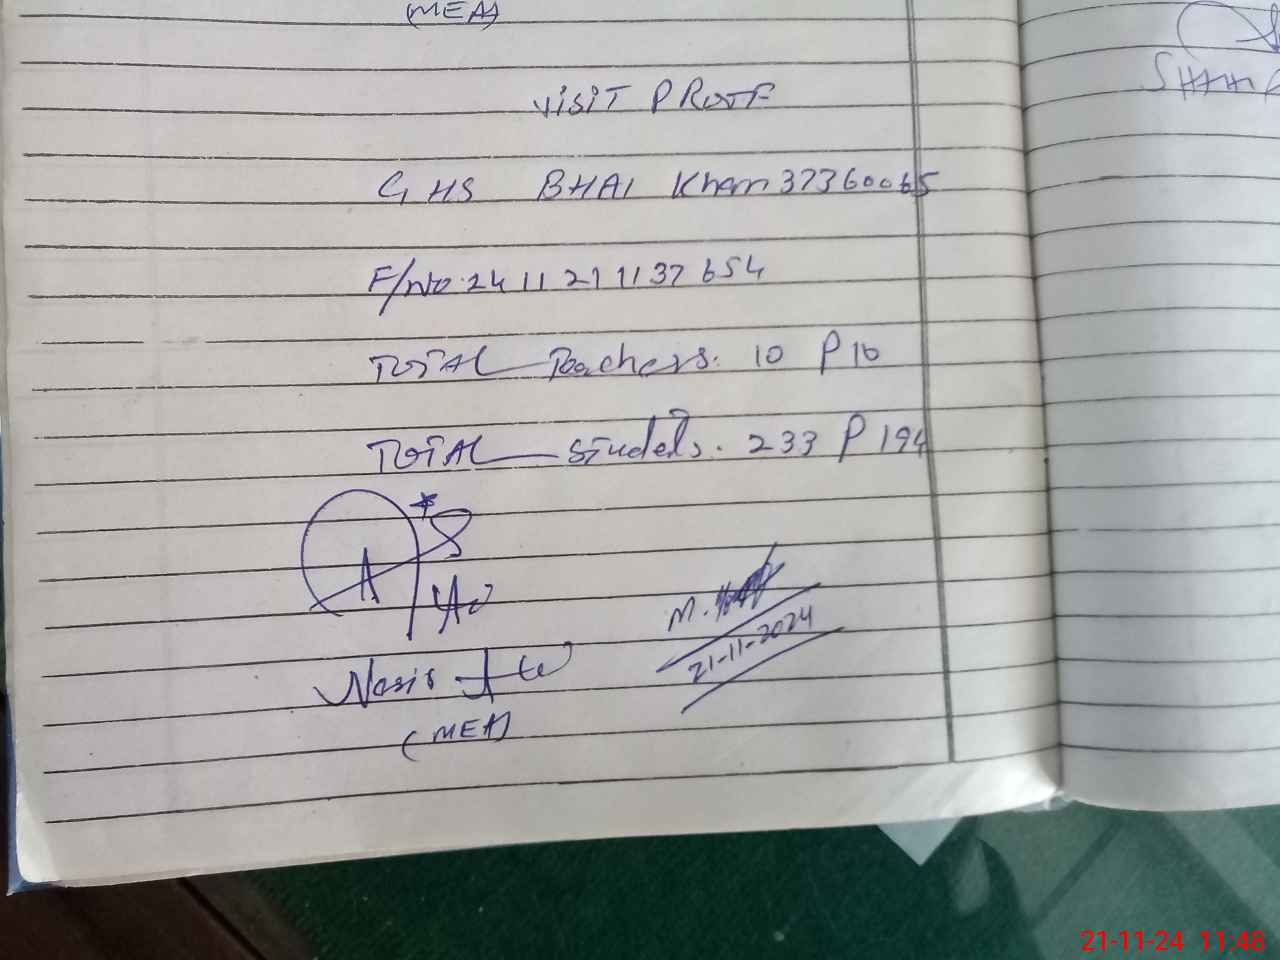 (MEA)
VISIT PROOF
GHS BHAI Khan 37360065
F/No. 241121 1137 654
TOTAL Teachers. 10 P 10
TOTAL Studets. 233 P 194
Nasir
(MEA)
M.
21-11-2024
21-11-24 11:48